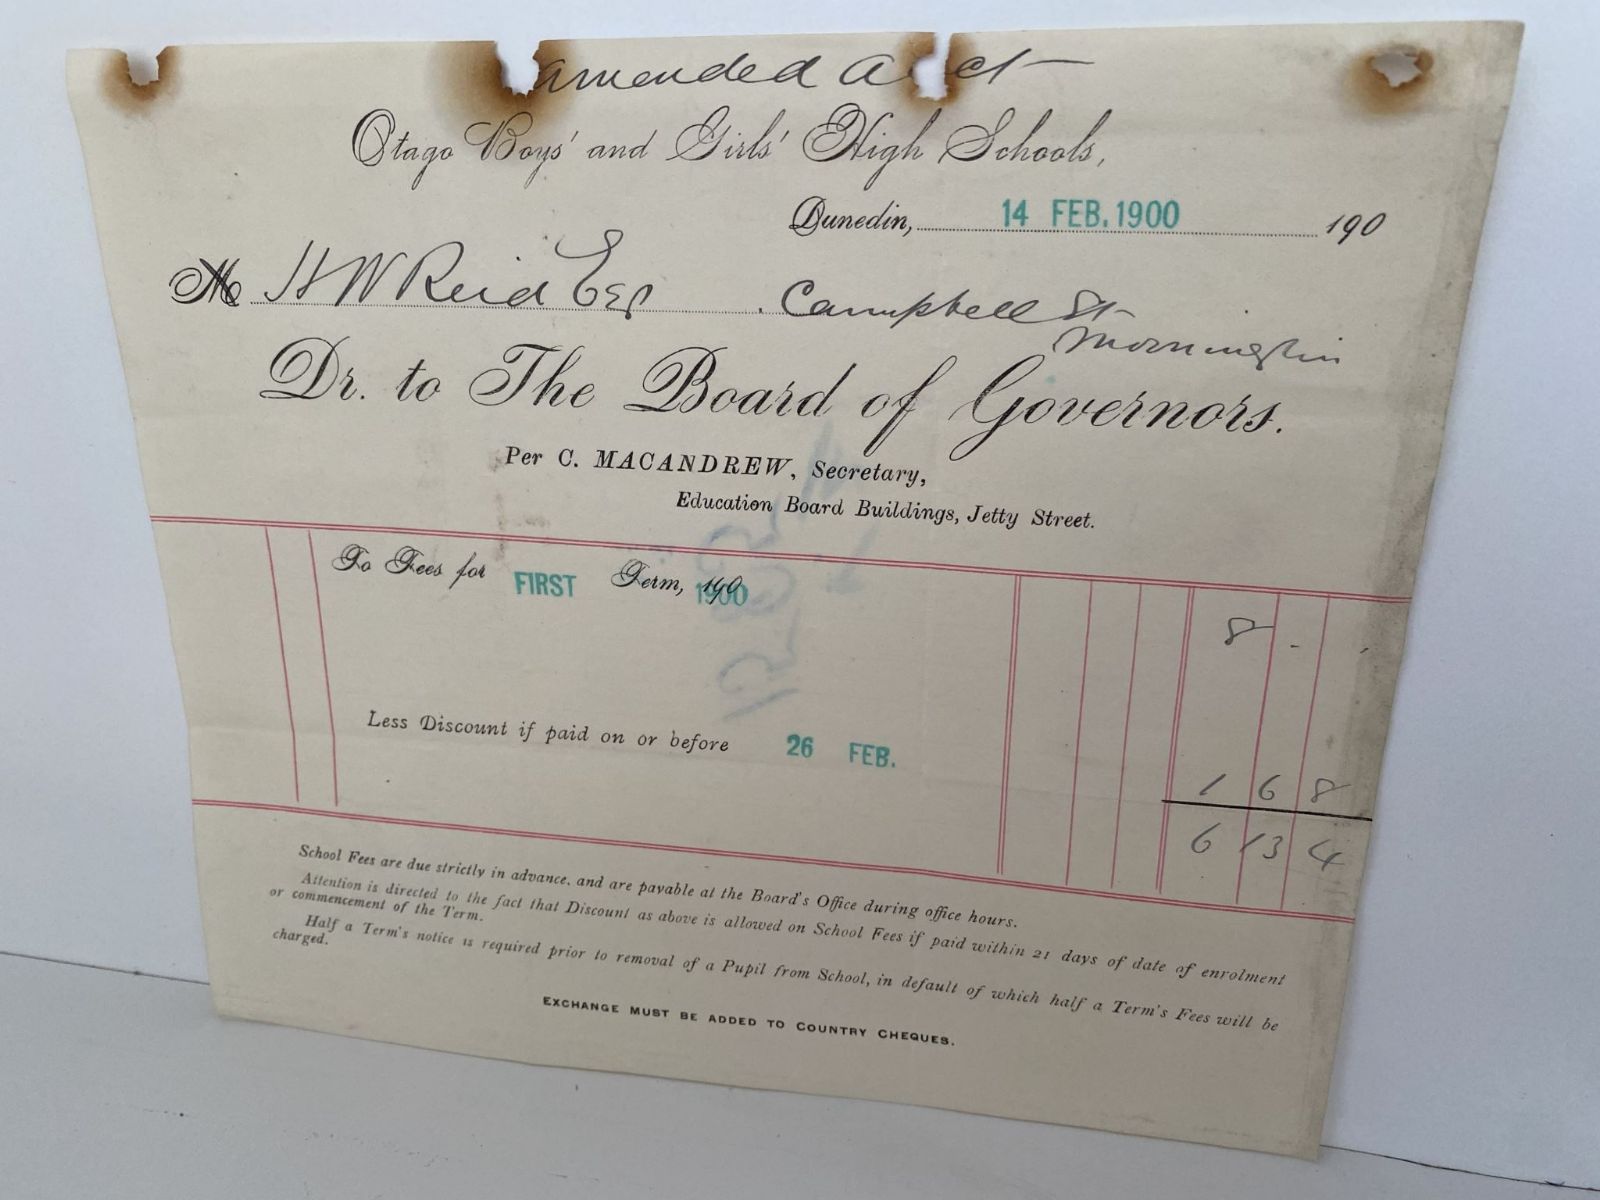 amended acct
Otago Boys' and Girls' High Schools,
Dunedin, 14 FEB. 1900 190
M H W Reid Esq . Campbell St
Mornington
Dr. to The Board of Governors.
Per C. MACANDREW, Secretary,
Education Board Buildings, Jetty Street.
To Fees for FIRST Term, 190 1900
8 - -
Less Discount if paid on or before 26 FEB.
1 6 8
6 13 4
School Fees are due strictly in advance, and are payable at the Board's Office during office hours.
Attention is directed to the fact that Discount as above is allowed on School Fees if paid within 21 days of date of enrolment
or commencement of the Term.
Half a Term's notice is required prior to removal of a Pupil from School, in default of which half a Term's Fees will be
charged.
EXCHANGE MUST BE ADDED TO COUNTRY CHEQUES.